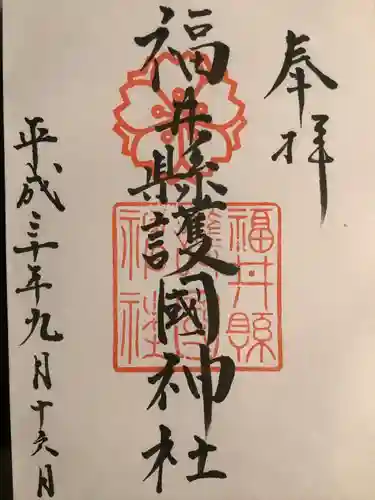 奉拝
福井縣護國神社
福井縣
護國
神社
平成三十年九月十六月